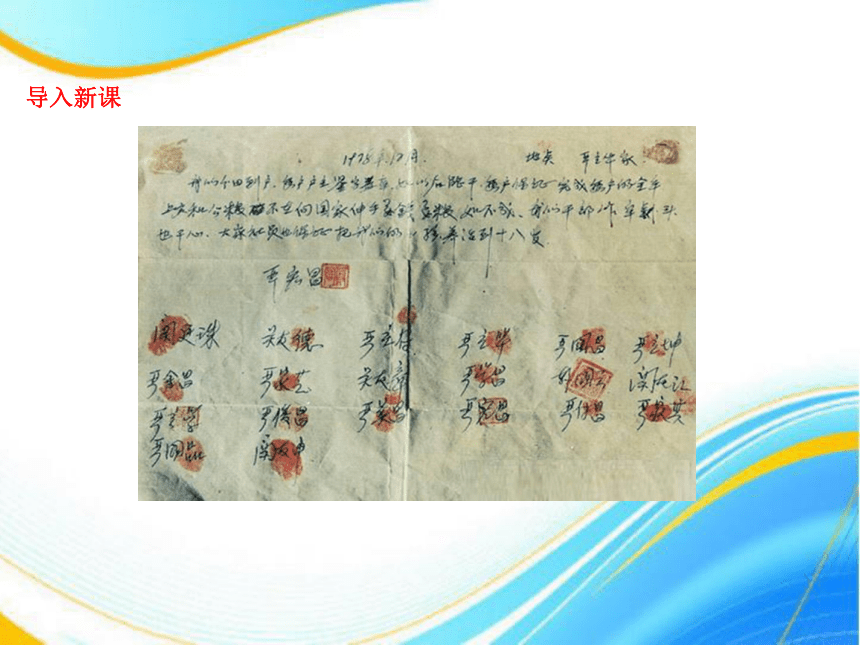 导入新课
1978年12月. 地点 严立华家.
我们分田到户.每户户主签字盖章,如以后能干.每户保证完成每户的全年
上交和公粮.不在向国家伸手要钱要粮,如不成.我们干部作牢刹头
也干心.大家社员也保证把我们的小孩养活到十八岁.
严宏昌
关廷珠 关友德 严立符 严立华 严国昌 严立坤
严金昌 严家芝 关友章 严学昌 韩国云 关友江
严立学 严俊昌 严美昌 严宏昌 严付昌 严家其
严国品 关友申